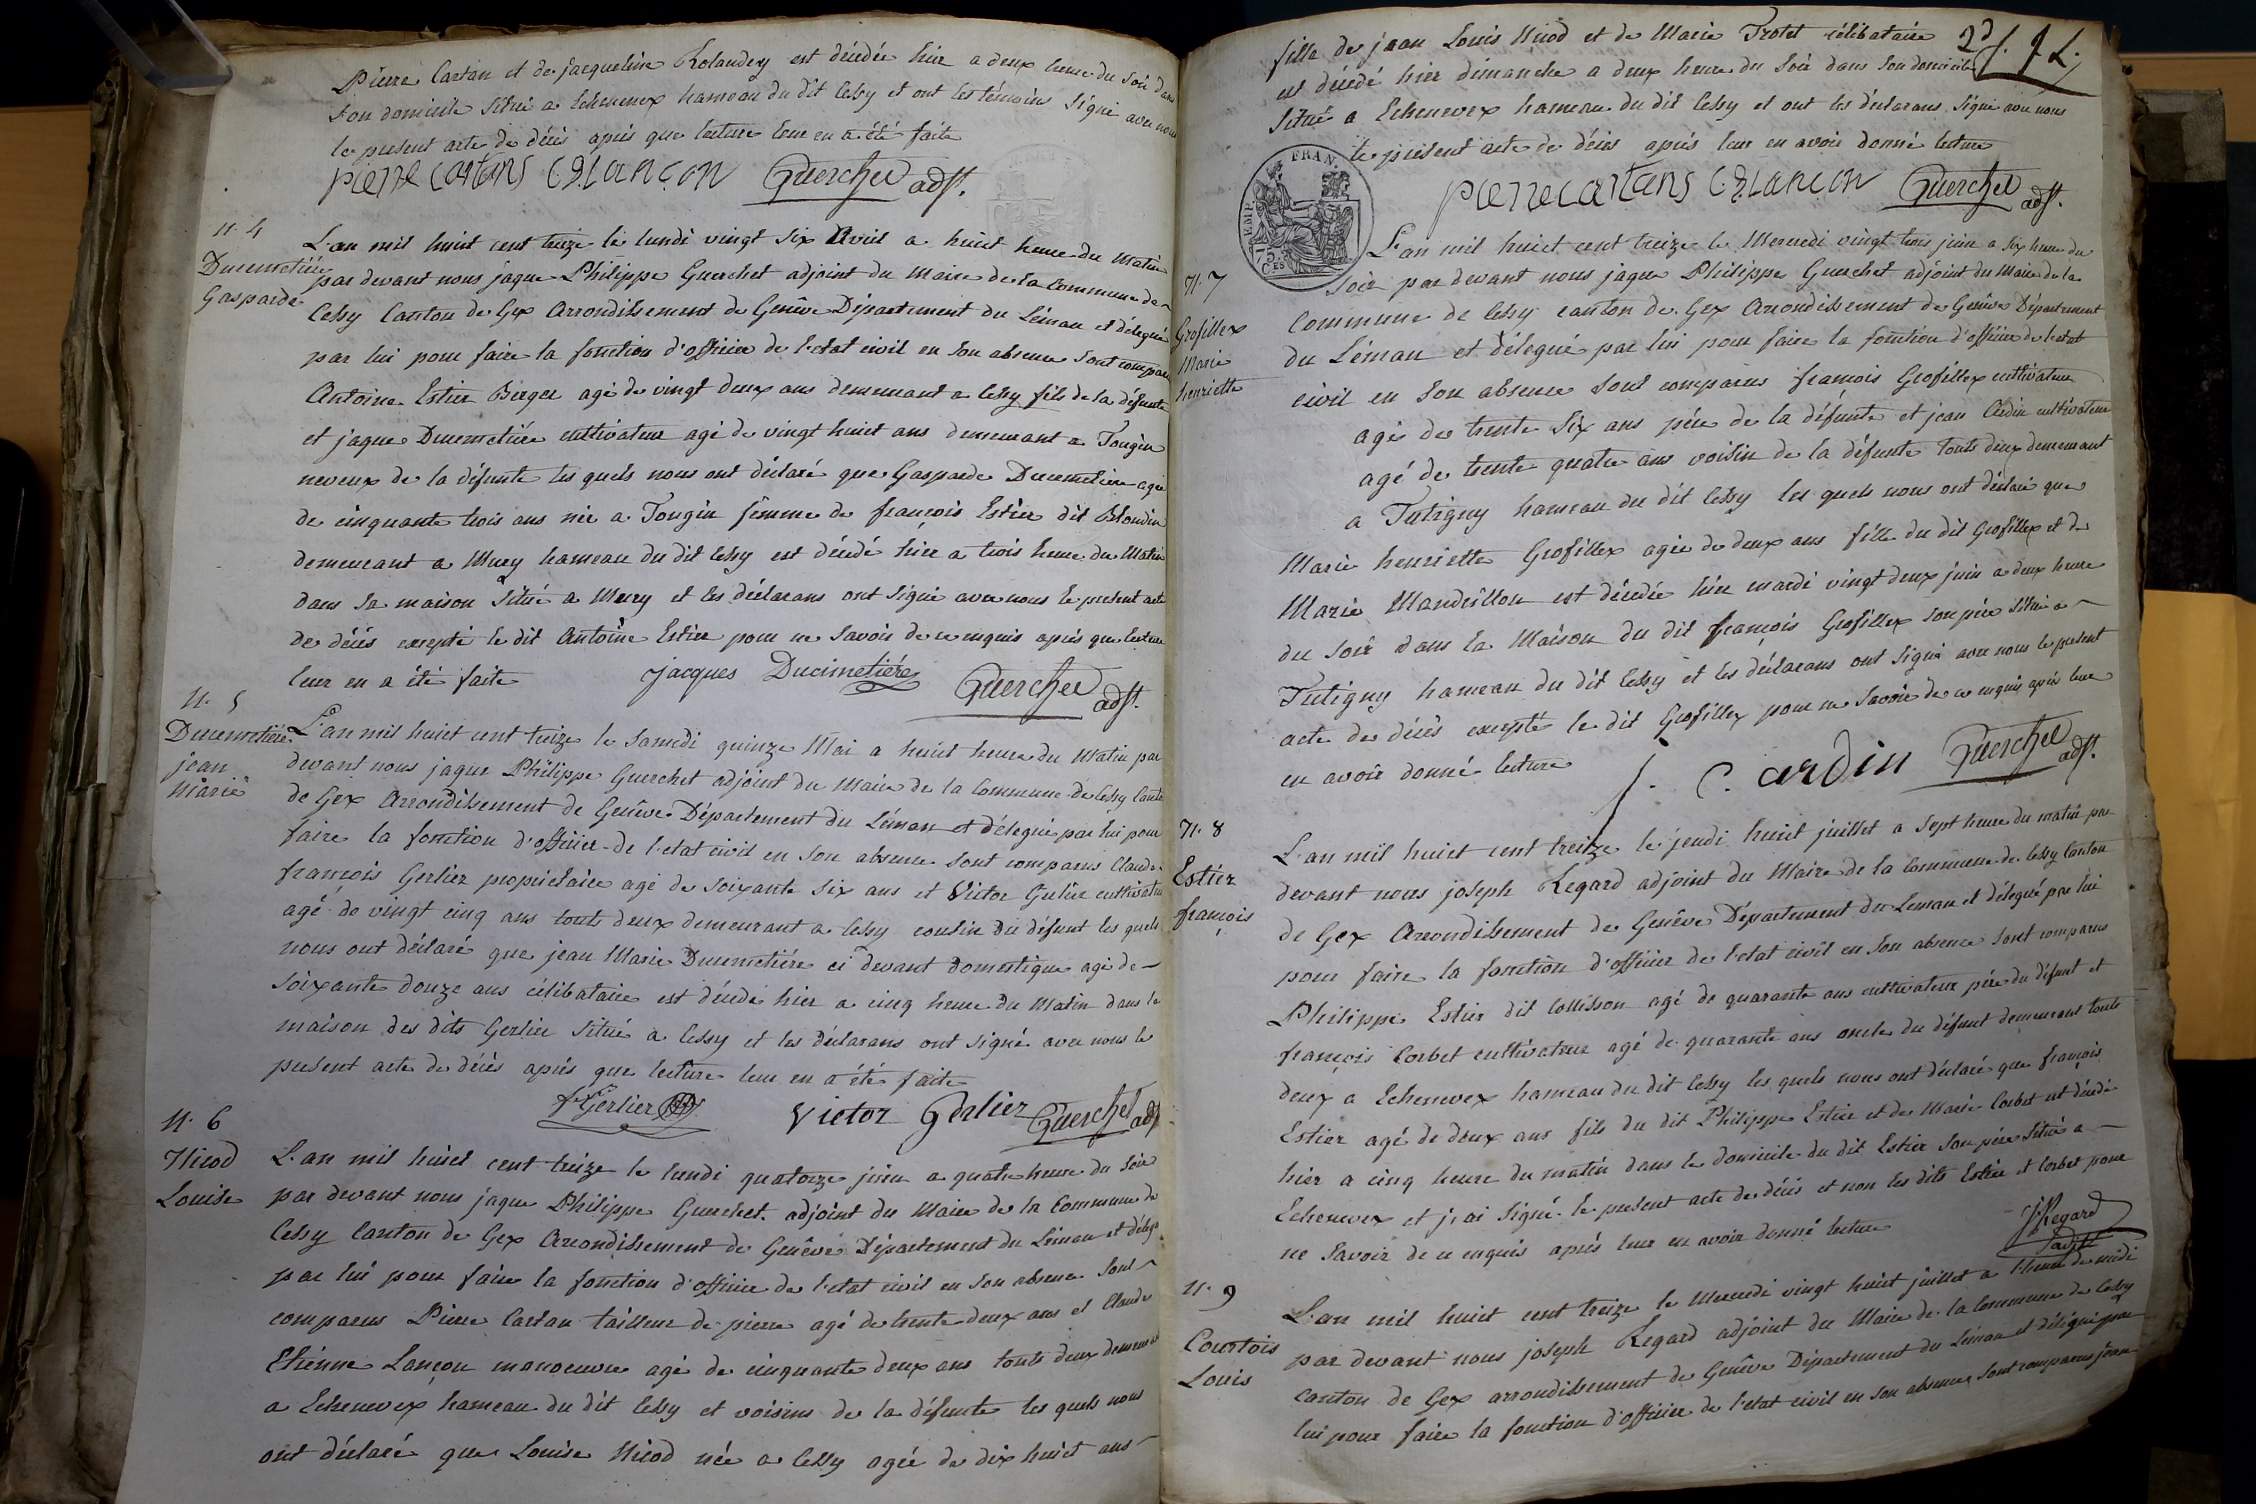 Pierre Cartan et de jacqueline Rolandey est décédée hier a deux heure du soir dans
son domicile situé a Echenevex hameau du dit Cessy et ont les témoins signé avec nous
le present acte de décès après que lecture leur en a été faite
pierre cartans C E Lançon Guerchet adjt.
N. 4
Ducemetière
Gasparde
L'an mil huit cent treize le lundi vingt six Avril a huict heure du Matin
par devant nous jaque Philippe Guerchet adjoint du Maire de la Commune de
Cessy Canton de Gex Arrondissement de Genêve Département du Léman et délegué
par lui pour faire la fonction d'officier de l'etat civil en son absence sont comparus
Antoine Estier Berger agé de vingt deux ans demeurant a Cessy fils de la défunte
et jaque Ducemetière cultivateur agé de vingt huict ans demeurant a Tougin
neveux de la défunte les quels nous ont déclaré que Gasparde Ducemetière agée
de cinquante trois ans née a Tougin femme de françois Estier dit Blondin
demeurant a Mury hameau du dit Cessy est décédé hier a trois heure du Matin
dans sa maison situé a Mury et les déclarans ont signé avec nous le present acte
de décès excepté le dit Antoine Estier pour ne savoir de ce enquis après que lecture
leur en a été faite jacques Ducimetière Guerchet adjt.
N. 5
Ducemetière
jean
Marie
L'an mil huict cent treize le Samedi quinze Mai a huict heure du Matin par
devant nous jaque Philippe Guerchet adjoint du Maire de la Commune de Cessy Canton
de Gex Arrondissement de Genêve Département du Léman et délegué par lui pour
faire la fonction d'officier de l'etat civil en son absence sont comparus Claude
françois Gerlier propriétaire agé de soixante six ans et Victor Gerlier cultivateur
agé de vingt cinq ans touts deux demeurant a Cessy cousin du défunt les quels
nous ont déclaré que jean Marie Ducemetière ci devant domestique agé de
soixante douze ans célibataire est décédé hier a cinq heure du Matin dans la
maison des dits Gerlier situé a Cessy et les déclarans ont signé avec nous le
present acte de décès après que lecture leur en a été faite
Gerlier Victor Gerlier Guerchet adjt
N. 6
Nicod
Louise
L'an mil huict cent treize le lundi quatorze juin a quatre heure du soir
par devant nous jaque Philippe Guerchet adjoint du Maire de la Commune de
Cessy Canton de Gex Arrondissement de Genêve Département du Léman et délegué
par lui pour faire la fonction d'officier de l'etat civil en son absence sont
comparus Pierre Cartan tailleur de pierre agé de trente deux ans et Claude
Etienne Lançon manoeuvre agé de cinquante deux ans touts deux demeurant
a Echenevex hameau du dit Cessy et voisins de la défunte les quels nous
ont déclaré que Louise Nicod née a Cessy agée de dix huict ans
2d f. 9 L.
fille de jean Louis Nicod et de Marie Trotet célibataire
est décédé hier dimanche a deux heure du soir dans son domicile
situé a Echenevex hameau du dit Cessy et ont les déclarans signé avec nous
le présent acte de décès après leur en avoir donné lecture
pierre cartans C E Lançon Guerchet adjt.
EMP. FRAN.
75 CES
N. 7
Grofillex
Marie
henriette
L'an mil huict cent treize le Mercredi vingt trois juin a six heure du
soir par devant nous jaque Philippe Guerchet adjoint du Maire de la
Commune de Cessy canton de Gex Arrondissement de Genêve Département
du Léman et délegué par lui pour faire la fonction d'officier de l'etat
civil en son absence sont comparus françois Grofillex cultivateur
agé de trente six ans pére de la défunte et jean Cardin cultivateur
agé de trente quatre ans voisin de la défunte touts deux demeurant
a Tutigny hameau du dit Cessy les quels nous ont déclaré que
Marie henriette Grofillex agée de deux ans fille du dit Grofillex et de
Marie Mandrillon est décédée hier mardi vingt deux juin a deux heure
du soir dans la Maison du dit françois Grofillex son pére situé a
Tutigny hameau du dit Cessy et les déclarans ont signé avec nous le present
acte de décès excepté le dit Grofillex pour ne savoir de ce enquis après leur
en avoir donné lecture j. C. ardin Guerchet adjt.
N. 8
Estier
françois
L'an mil huict cent treize le jeudi huict juillet a sept heure du matin par
devant nous joseph Regard adjoint du Maire de la Commune de Cessy Canton
de Gex Arrondissement de Genêve Département du Leman et délegué par lui
pour faire la fonction d'officier de l'etat civil en son absence sont comparus
Philippe Estier dit Collisson agé de quarante ans cultivateur pére du défunt et
françois Corbet cultivateur agé de quarante ans oncle du défunt demeurant touts
deux a Echenevex hameau du dit Cessy les quels nous ont déclaré que françois
Estier agé de deux ans fils du dit Philippe Estier et de Marie Corbet est décédé
hier a cinq heure du matin dans le domicile du dit Estier son pére situé a
Echenevex et j'ai signé le present acte de décès et non les dits Estier et Corbet pour
ne savoir de ce enquis après leur en avoir donné lecture J. Regard
adjt
N. 9
Courtois
Louis
L'an mil huict cent treize le Mercredi vingt huict juillet a l'heure de midi
par devant nous joseph Regard adjoint du Maire de la Commune de Cessy
canton de Gex arrondissement de Genêve Département du Léman et délegué par
lui pour faire la fonction d'officier de l'etat civil en son absence sont comparus jean